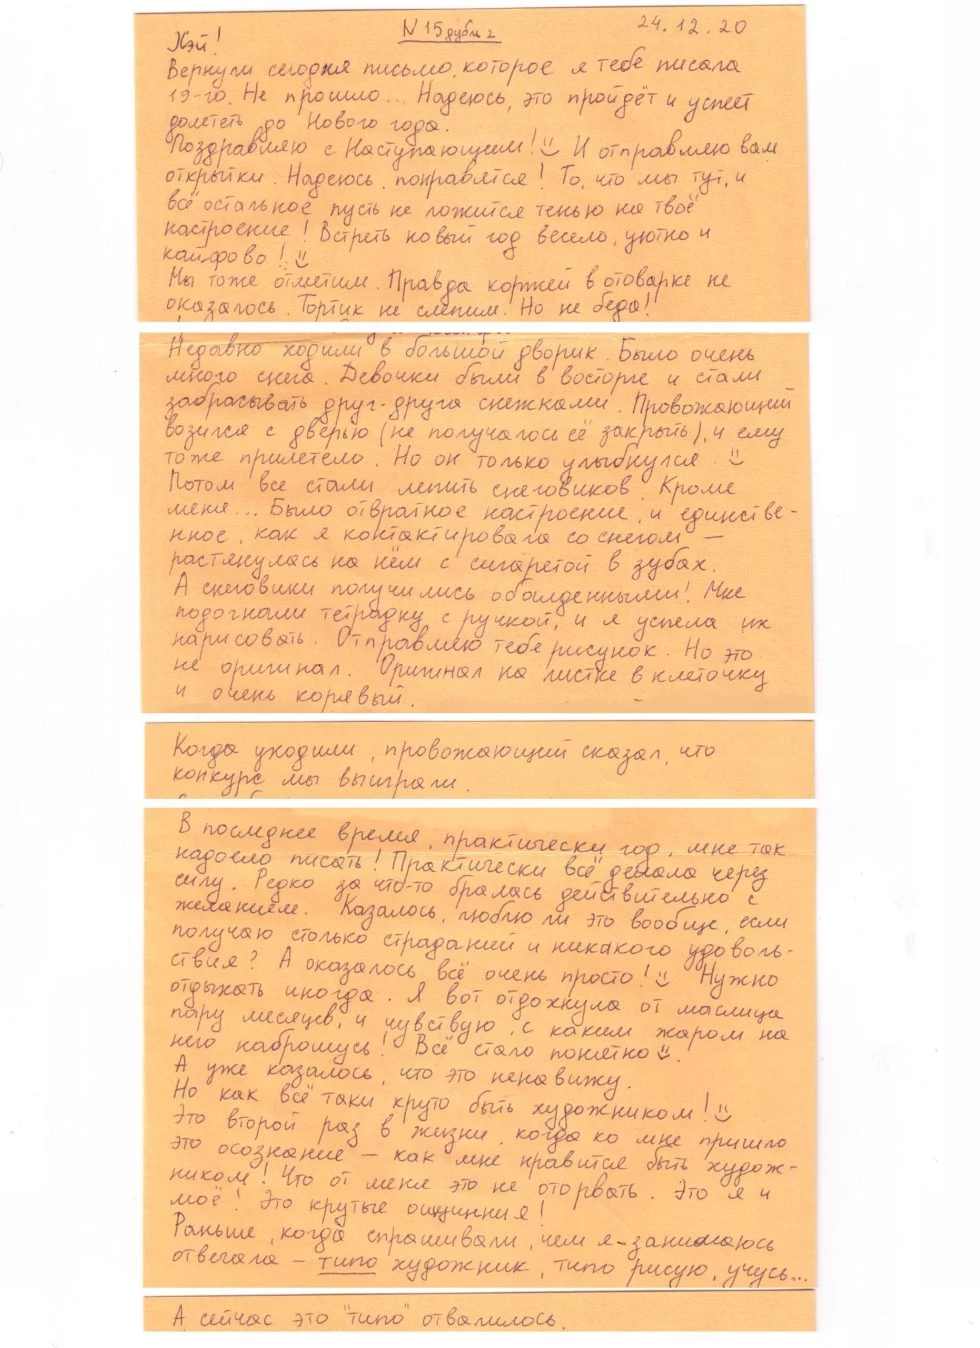 N 15 дубль 2
24.12.20
Хэй!
Вернули сегодня письмо, которое я тебе писала
19-го. Не прошло... Надеюсь, это пройдёт и успеет
долететь до Нового года.
Поздравляю с Наступающим! И отправляю вам
открытки. Надеюсь, понравятся! То, что мы тут, и
всё остальное пусть не ложится тенью на твоё
настроение! Встреть новый год весело, уютно и
кайфово!
Мы тоже отметим. Правда коржей в отоварке не
оказалось. Тортик не слепим. Но не беда!
Недавно ходили в большой дворик. Было очень
много снега. Девочки были в восторге и стали
забрасывать друг-друга снежками. Провожающий
возился с дверью (не получалось её закрыть), и ему
тоже прилетело. Но он только улыбнулся.
Потом все стали лепить снеговиков. Кроме
меня... Было отвратное настроение, и единстве-
нное, как я контактировала со снегом —
растянулась на нём с сигаретой в зубах.
А снеговики получились обалденными! Мне
подогнали тетрадку с ручкой, и я успела их
нарисовать. Отправляю тебе рисунок. Но это
не оригинал. Оригинал на листке в клеточку
и очень корявый.
Когда уходили, провожающий сказал, что
конкурс мы выиграли.
В последнее время, практически год, мне так
надоело писать! Практически всё делала через
силу. Редко за что-то бралась действительно с
желанием. Казалось, люблю ли это вообще, если
получаю столько страданий и никакого удоволь-
ствия? А оказалось всё очень просто! Нужно
отдыхать иногда. Я вот отдохнула от маслица
пару месяцев, и чувствую, с каким жаром на
него наброшусь! Всё стало понятно.
А уже казалось, что это ненавижу.
Но как всё таки круто быть художником!
Это второй раз в жизни, когда ко мне пришло
это осознание — как мне нравится быть худож-
ником! Что от меня это не оторвать. Это я и
моё! Это крутые ощщения!
Раньше, когда спрашивали, чем я занимаюсь
отвечала – типо художник, типо рисую, учусь...
А сейчас это "типо" отвалилось.